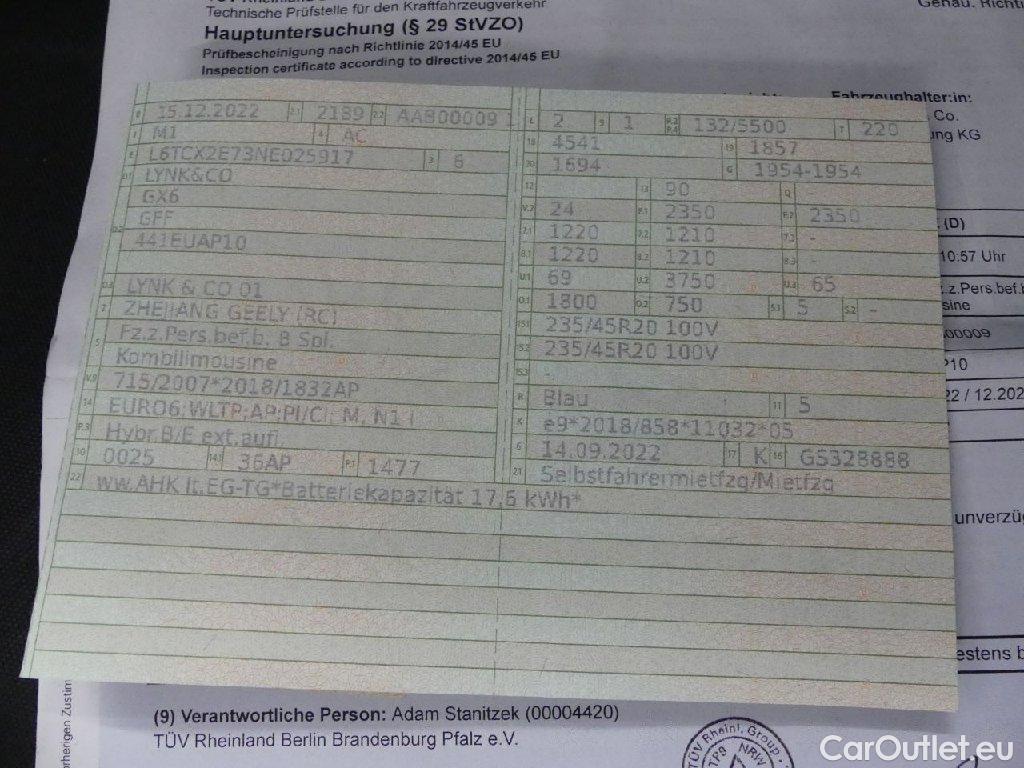 Technische Prüfstelle für den Kraftfahrzeugverkehr
Hauptuntersuchung (§ 29 StVZO)
Prüfbescheinigung nach Richtlinie 2014/45 EU
Inspection certificate according to directive 2014/45 EU
Fahrzeughalter:in:
Co.
ng KG
(D)
10:57 Uhr
z.Pers.bef.b
sine
00009
P10
22 / 12.202
unverzüg
estens b
15.12.2022 2189 AAB00009 1
M1 AC
L6TCX2E73NE025917 3 6
LYNK&CO
GX6
GFF
441EUAP10
LYNK & CO 01
ZHEJIANG GEELY (RC)
Fz.z.Pers.bef.b. 8 Spl.
Kombilimousine
715/2007*2018/1832AP
EURO6;WLTP;AP;PI/CI; M, N1 I
Hybr.B/E ext.aufl.
10 0025 14.1 36AP P.1 1477
22 ww.AHK lt.EG-TG*Batteriekapazität 17,6 kWh*
L 2 9 1 P.2 P.4 132/5500 T 220
18 4541 19 1857
20 1694 G 1954-1954
12 - 13 90 Q -
V.7 24 F.1 2350 F.2 2350
7.1 1220 7.2 1210 7.3 -
8.1 1220 8.2 1210 8.3 -
U.1 69 U.2 3750 U.3 65
O.1 1800 O.2 750 S.1 5 S.2 -
15.1 235/45R20 100V
15.2 235/45R20 100V
15.3 -
R Blau 11 5
K e9*2018/858*11032*05
6 14.09.2022 17 K 16 GS328888
21 Selbstfahrermietfzg/Mietfzg
(9) Verantwortliche Person: Adam Stanitzek (00004420)
TÜV Rheinland Berlin Brandenburg Pfalz e.V.
TÜV Rheinl. Group
NRW
CarOutlet.eu